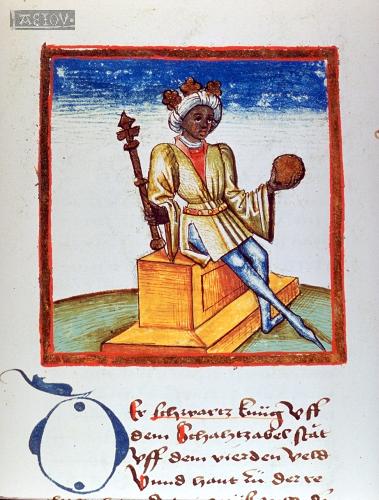 AEIOV·
DEr schwartz künig Vff
dem Schahtzabel stat
Vff dem vierden veld
Vnnd haut zü der re